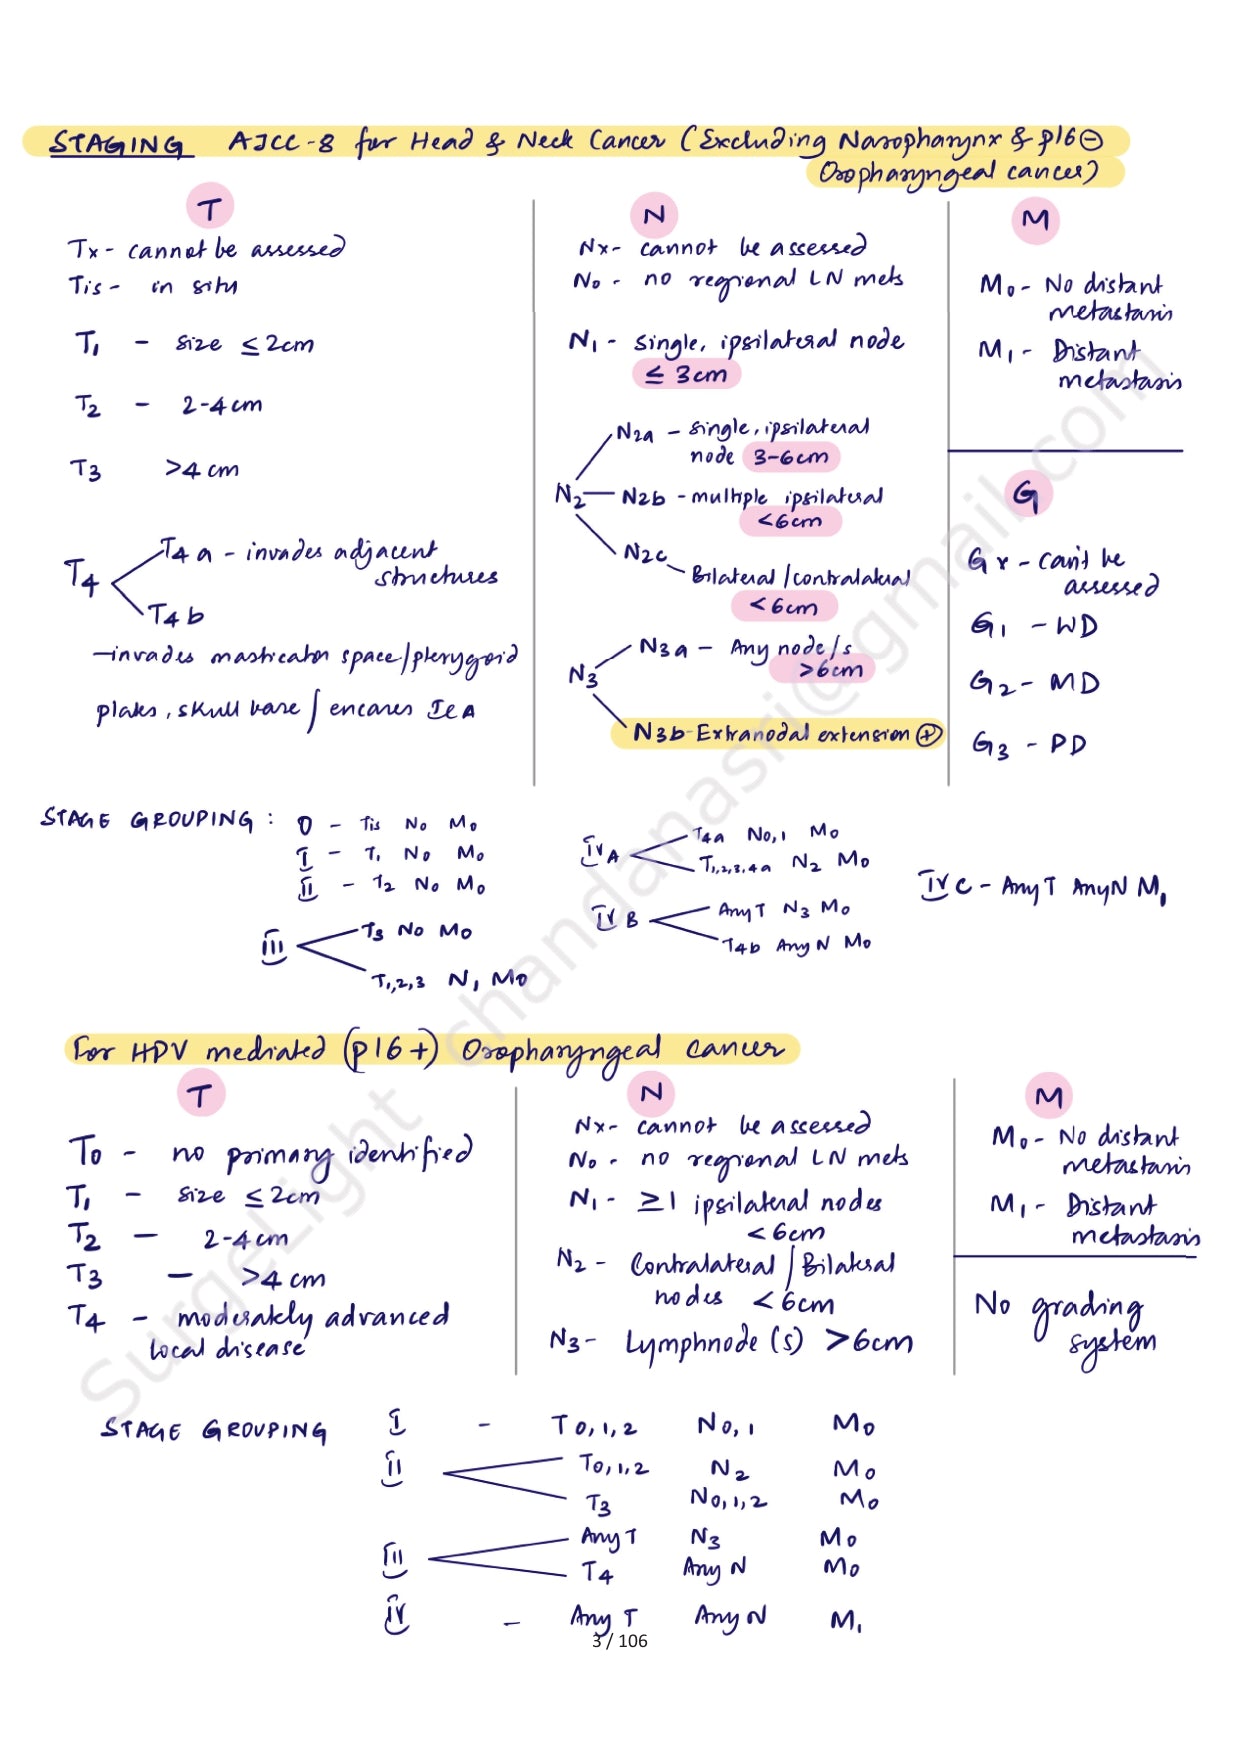 STAGING AJCC-8 for Head & Neck Cancer (Excluding Nasopharynx & p16⊖
Oropharyngeal cancer)
T
Tx - cannot be assessed
Tis - in situ
T1 - size ≤2cm
T2 - 2-4cm
T3 >4cm
T4
T4a - invades adjacent
structures
T4b
- invades masticator space/pterygoid
plates, skull base / encases ICA
N
Nx - cannot be assessed
N0 - no regional LN mets
N1 - single, ipsilateral node
≤ 3cm
N2
N2a - single, ipsilateral
node 3-6cm
N2b - multiple ipsilateral
<6cm
N2c
- Bilateral/contralateral
<6cm
N3
N3a - Any node/s
>6cm
N3b - Extranodal extension ⊕
M
M0 - No distant
metastasis
M1 - Distant
metastasis
G
Gx - can't be
assessed
G1 - WD
G2 - MD
G3 - PD
STAGE GROUPING :
0 - Tis N0 M0
I - T1 N0 M0
II - T2 N0 M0
III
T3 N0 M0
T1,2,3 N1 M0
IVA
T4a N0,1 M0
T1,2,3,4a N2 M0
IVB
Any T N3 M0
T4b Any N M0
IVC - Any T Any N M1
For HPV mediated (p16+) Oropharyngeal cancer
T
T0 - no primary identified
T1 - size ≤2cm
T2 - 2-4cm
T3 - >4cm
T4 - moderately advanced
local disease
N
Nx - cannot be assessed
N0 - no regional LN mets
N1 - ≥1 ipsilateral nodes
<6cm
N2 - Contralateral / Bilateral
nodes <6cm
N3 - Lymphnode(s) >6cm
M
M0 - No distant
metastasis
M1 - Distant
metastasis
No grading
system
STAGE GROUPING
I - T0,1,2 N0,1 M0
II
T0,1,2 N2 M0
T3 N0,1,2 M0
III
Any T N3 M0
T4 Any N M0
IV - Any T Any N M1
3 / 106
SurgeLight chandanasri@gmail.com